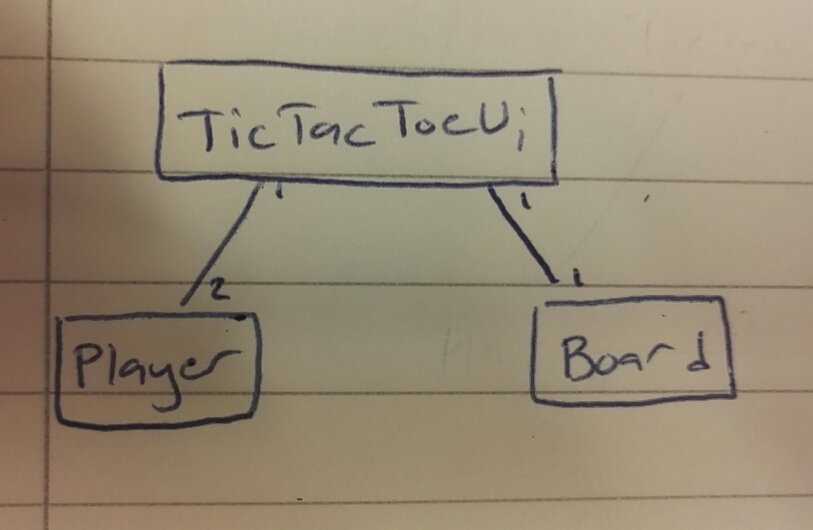 TicTacToeUi
1 1
2 1
Player Board